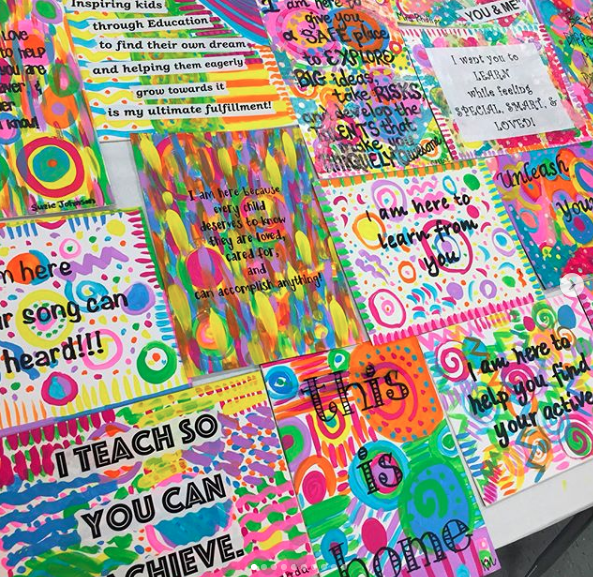 LOVE
to help
you are
ever
know!
Suzie Johnson
Inspiring kids
through Education
to find their own dream,
and helping them eagerly
grow towards it
is my ultimate fulfillment!
I am here to
give you
a SAFE place
to EXPLORE
BIG ideas,
take RISKS
and develop the
TALENTS that
make you
UNIQUELY awesome
YOU & ME
I want you to
LEARN
while feeling
SPECIAL, SMART, &
LOVED!
I am here because
every child
deserves to know
they are loved,
cared for,
and
can accomplish anything!
I am here to
learn from
you
Unleash
Your
here
song can
heard!!!
I am here to
help you find
your active
I TEACH SO
YOU CAN
ACHIEVE.
this
is
home